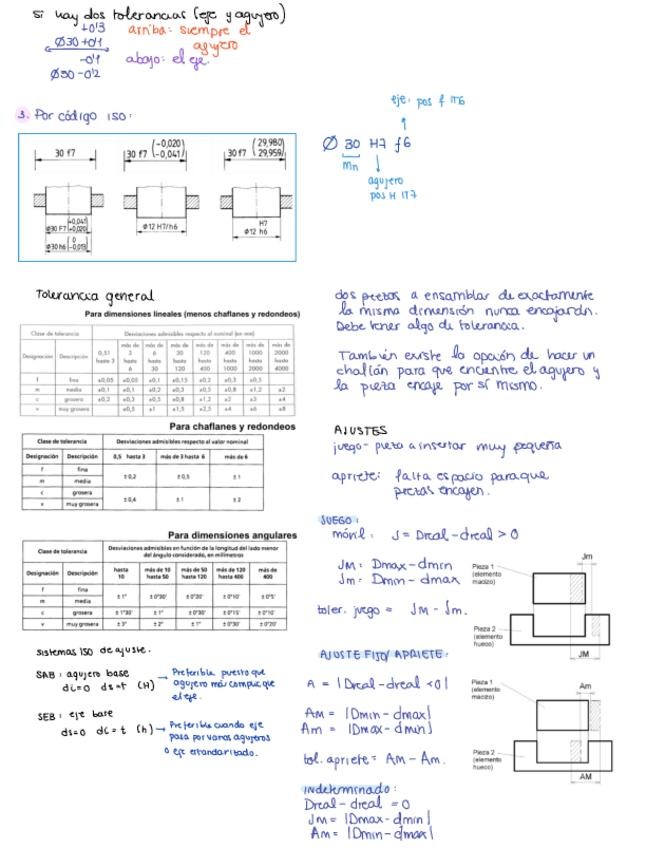 si hay dos tolerancias (eje y agujero)
+0'3
Ø30+0'1
-0'1
Ø30-0'2
arriba: siempre el
agujero
abajo: el eje.
3. Por código ISO:
30 f7
30 f7 (-0,020 -0,041)
30 f7 (29,980 29,959)
Ø30 F7 (+0,041 +0,020)
Ø30 h6 (0 -0,013)
Ø 12 H7/h6
H7
Ø 12 h6
eje: pos f IT6
Ø 30 H7 f6
mn
agujero
pos H IT7
Tolerancia general
Para dimensiones lineales (menos chaflanes y redondeos)
Clase de tolerancia Desviaciones admisibles respecto al nominal (en mm)
Designación Descripción 0,51 hasta 3 más de 3 hasta 6 más de 6 hasta 30 más de 30 hasta 120 más de 120 hasta 400 más de 400 hasta 1000 más de 1000 hasta 2000 más de 2000 hasta 4000
f fina ±0,05 ±0,05 ±0,1 ±0,15 ±0,2 ±0,3 ±0,5
m media ±0,1 ±0,1 ±0,2 ±0,3 ±0,5 ±0,8 ±1,2 ±2
c grosera ±0,2 ±0,3 ±0,5 ±0,8 ±1,2 ±2 ±3 ±4
v muy grosera ±0,5 ±1 ±1,5 ±2,5 ±4 ±6 ±8
Para chaflanes y redondeos
Clase de tolerancia Desviaciones admisibles respecto al valor nominal
Designación Descripción 0,5 hasta 3 más de 3 hasta 6 más de 6
f fina
± 0,2 ± 0,5 ± 1
m media
c grosera
± 0,4 ± 1 ± 2
v muy grosera
Para dimensiones angulares
Clase de tolerancia Desviaciones admisibles en función de la longitud del lado menor del ángulo considerado, en milímetros
Designación Descripción hasta 10 más de 10 hasta 50 más de 50 hasta 120 más de 120 hasta 400 más de 400
f fina
± 1° ± 0°30' ± 0°20' ± 0°10' ± 0°5'
m media
c grosera ± 1°30' ± 1° ± 0°30' ± 0°15' ± 0°10'
v muy grosera ± 3° ± 2° ± 1° ± 0°30' ± 0°20'
sistemas ISO de ajuste.
SAB: agujero base
di=0 ds=t (H)
Preferible puesto que
agujero más comp que
el eje.
SEB: eje base
ds=0 di=t (h)
Preferible cuando eje
pasa por varios agujeros
o eje estandarizado.
dos piezas a ensamblar de exactamente
la misma dimensión nunca encajarán.
Debe tener algo de tolerancia.
También existe la opción de hacer un
chaflán para que encuentre el agujero y
la pieza encaje por sí mismo.
AJUSTES
juego- pieza a insertar muy pequeña
apriete: falta espacio para que
piezas encajen.
JUEGO:
móvil: J = Dreal-dreal > 0
JM = Dmax-dmin
Jm = Dmin-dmax
toler. juego = JM - Jm.
Jm
Pieza 1
(elemento
macizo)
Pieza 2
(elemento
hueco)
JM
AJUSTE FIJO/ APRIETE:
A = |Dreal-dreal <0|
AM = |Dmin-dmax|
Am = |Dmax-dmin|
tol. apriete = AM - Am.
Am
Pieza 1
(elemento
macizo)
Pieza 2
(elemento
hueco)
AM
indeterminado:
Dreal-dreal = 0
JM = |Dmax-dmin|
AM = |Dmin-dmax|